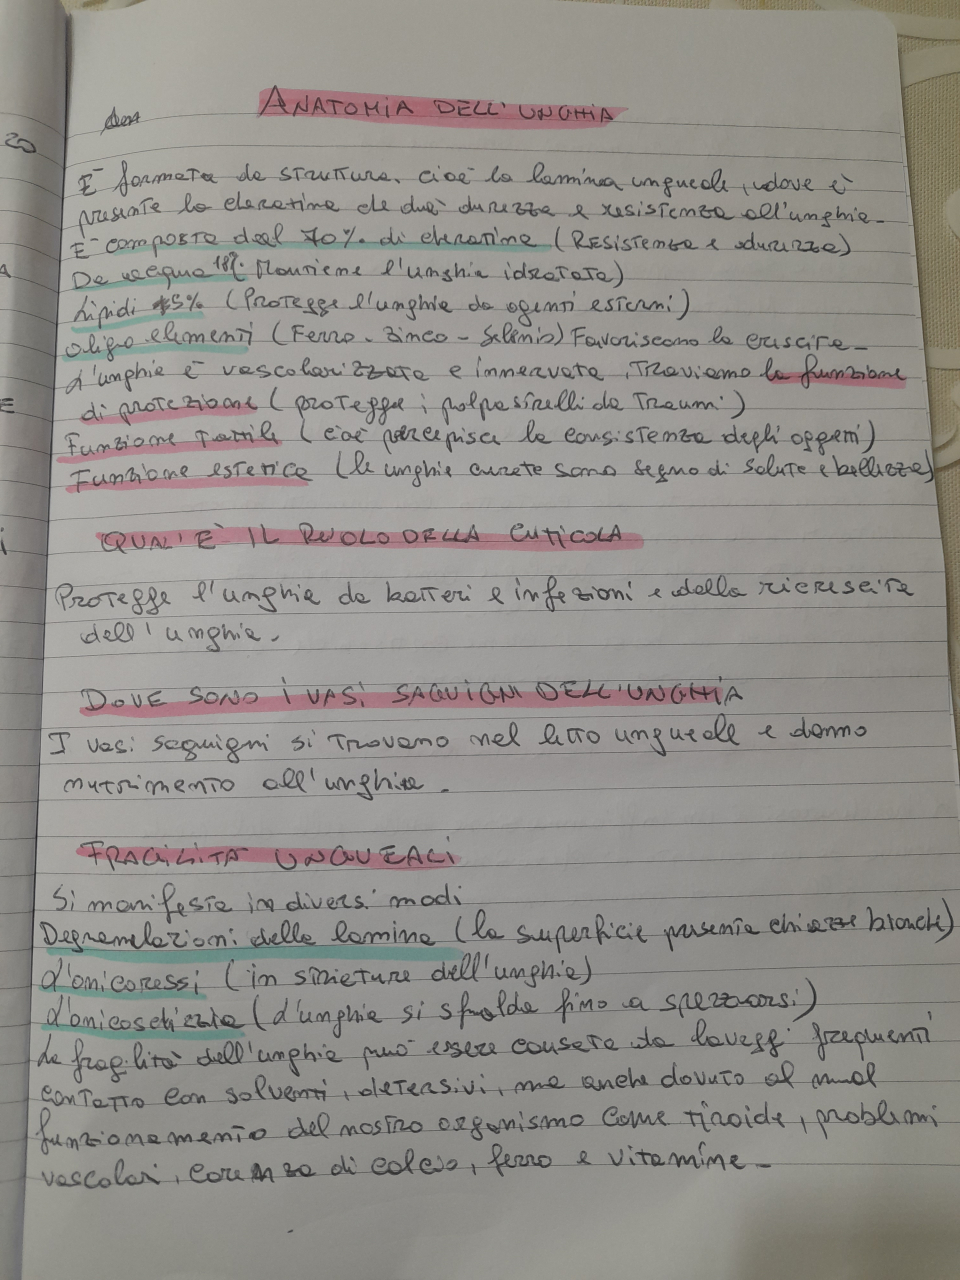 ANATOMIA DELL'UNGHIA
20
È formata da struttura, cioè la lamina ungueale, dove è
presente la cheratina che dà durezza e resistenza all'unghia-
È composta dal 70% di cheratina (Resistenza e durezza)
Da acqua 18% (Mantiene l'unghia idratata)
A
Lipidi 5% (Protegge l'unghia da agenti esterni)
oligo elementi (Ferro - Zinco - Selenio) Favoriscono la crescita-
L'unghia è vascolarizzata e innervata, Troviamo la funzione
E
di protezione (protegge i polpastrelli da Traumi)
Funzione Tattile (cioè percepisce la consistenza degli oggetti)
Funzione estetica (le unghie curate sono segno di salute e bellezza)
i
QUAL'È IL RUOLO DELLA CUTICOLA
Protegge l'unghia da batteri e infezioni e dalla ricrescita
dell'unghia.
DOVE SONO I VASI SAGUIGNI DELL'UNGHIA
I vasi saguigni si trovano nel letto ungueale e danno
nutrimento all'unghia.
FRAGILITÀ UNGUEALI
Si manifesta in diversi modi
Degramelazioni della lamina (la superficie presenta chiazze bianche)
L'onicoressi (in striature dell'unghia)
L'onicoschizzia (L'unghia si sfalda fino a spezzarsi)
La fragilità dell'unghia può essere causata da lavaggi frequenti
contatto con solventi, detersivi, ma anche dovuto al mal
funzionamento del nostro organismo come tiroide, problemi
vascolari, carenza di calcio, ferro e vitamine-